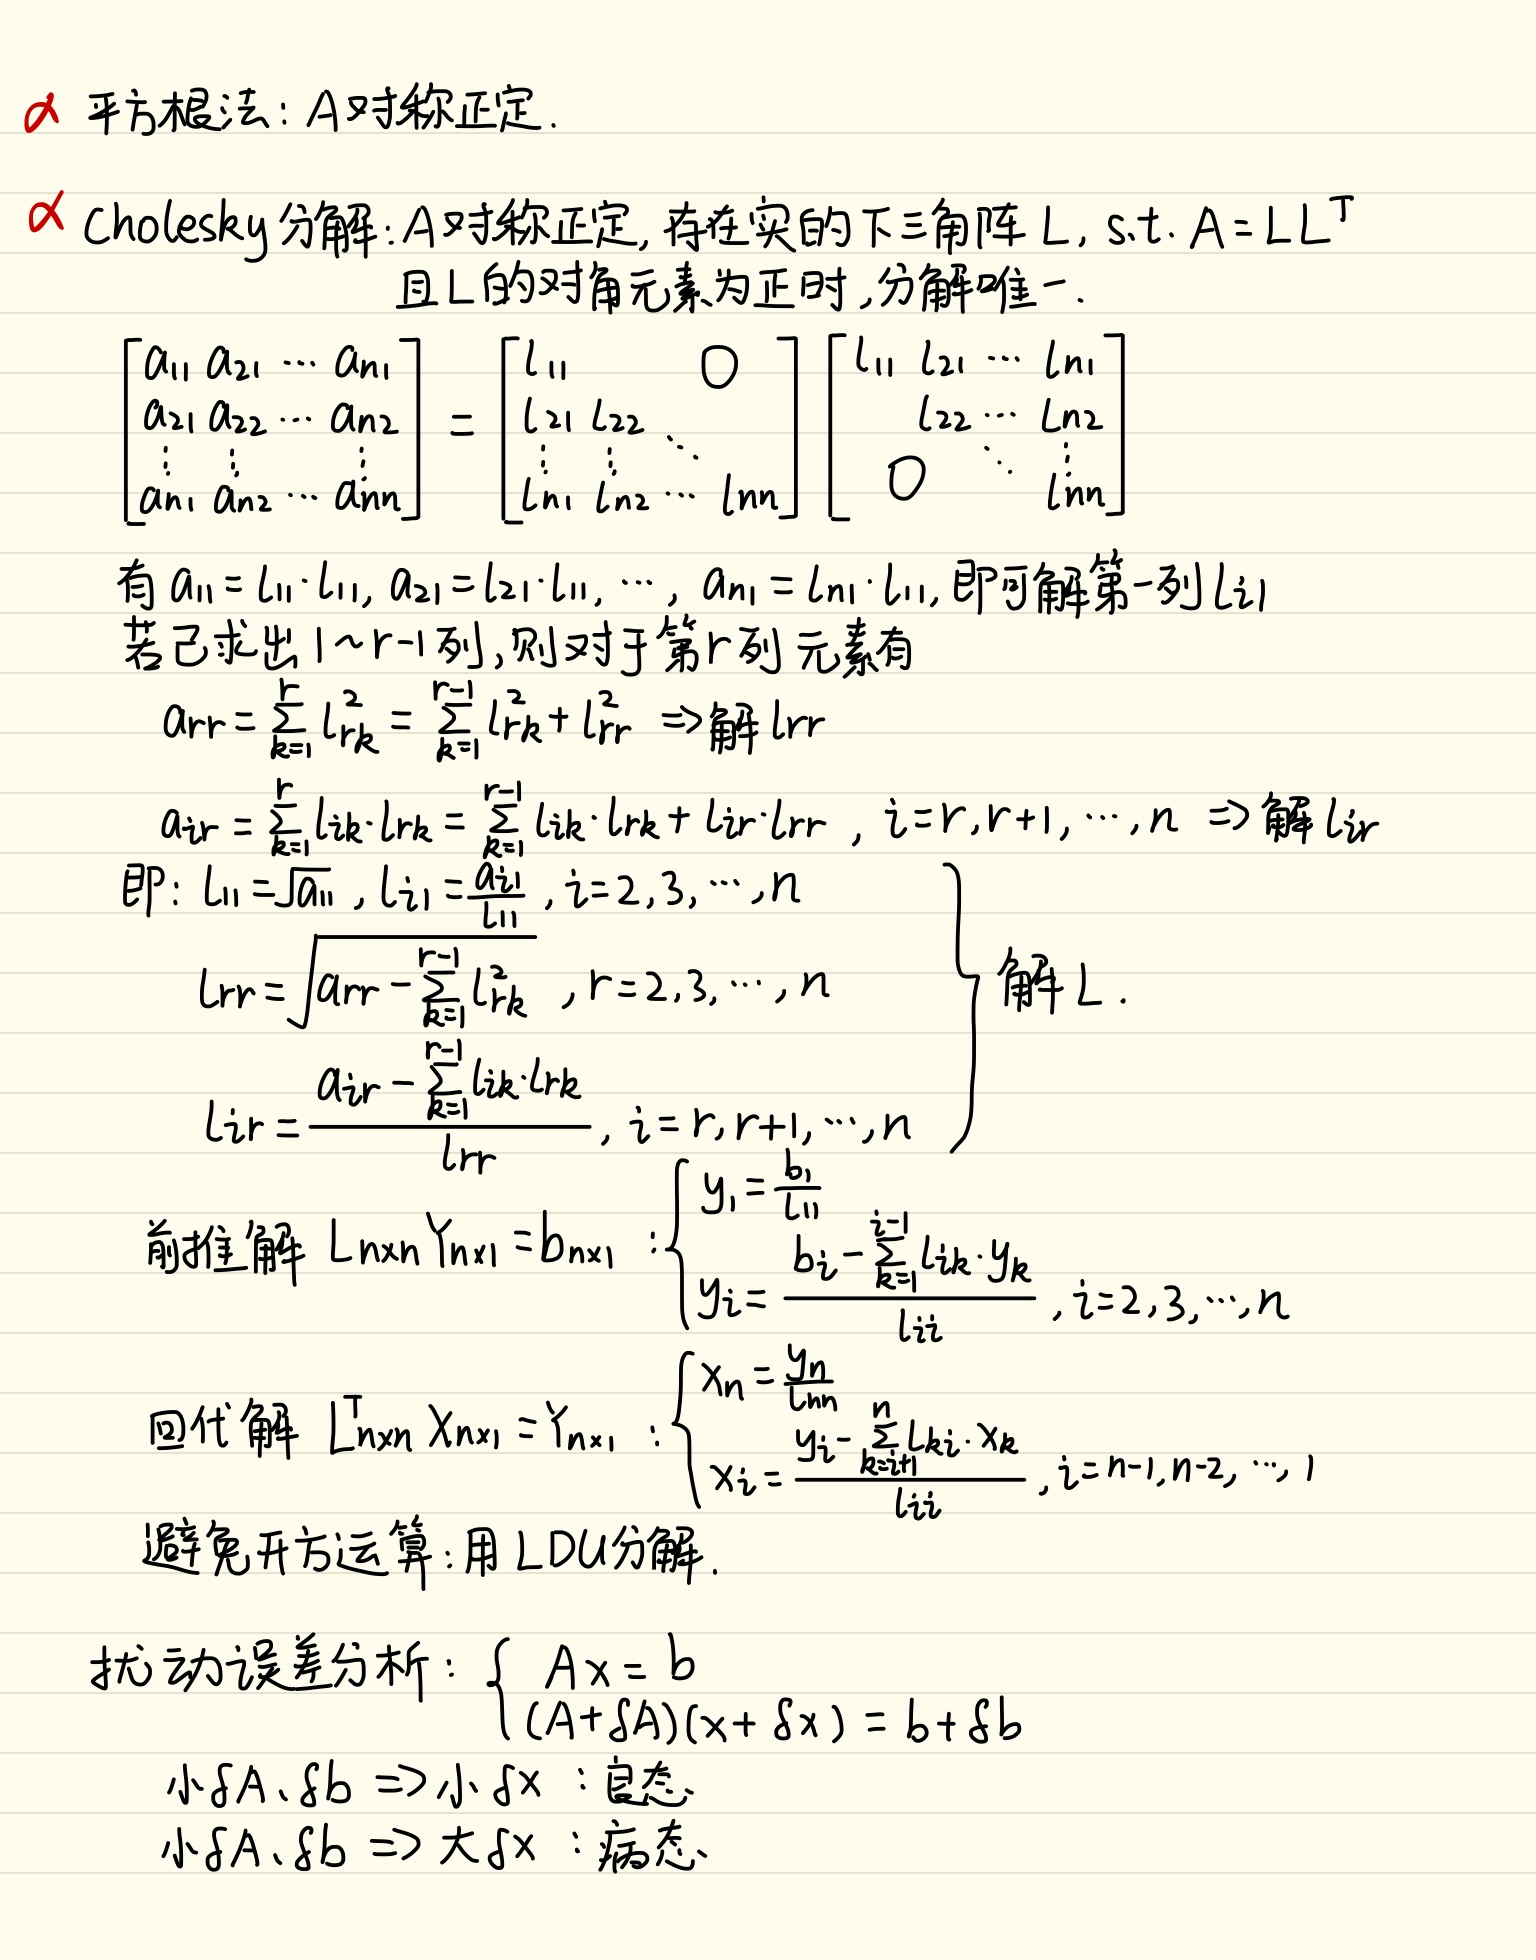 α 平方根法: A对称正定.
α Cholesky分解: A对称正定, 存在实的下三角阵 L, s.t. A=LL^T
且L的对角元素为正时,分解唯一.
[a₁₁ a₂₁ ⋯ aₙ₁; a₂₁ a₂₂ ⋯ aₙ₂; ⋮ ⋮ ⋮; aₙ₁ aₙ₂ ⋯ aₙₙ] = [l₁₁ 0; l₂₁ l₂₂; ⋮ ⋮ ⋱; lₙ₁ lₙ₂ ⋯ lₙₙ] [l₁₁ l₂₁ ⋯ lₙ₁; l₂₂ ⋯ lₙ₂; 0 ⋱ ⋮; lₙₙ]
有 a₁₁=l₁₁·l₁₁, a₂₁=l₂₁·l₁₁, ⋯, aₙ₁=lₙ₁·l₁₁, 即可解第一列 l_{i1}
若已求出 1~r-1列,则对于第r列元素有
a_{rr} = Σ_{k=1}^{r} l_{rk}^2 = Σ_{k=1}^{r-1} l_{rk}^2 + l_{rr}^2 => 解 l_{rr}
a_{ir} = Σ_{k=1}^{r} l_{ik}·l_{rk} = Σ_{k=1}^{r-1} l_{ik}·l_{rk} + l_{ir}·l_{rr}, i=r,r+1,⋯,n => 解 l_{ir}
即: l₁₁=√a₁₁, l_{i1}=a_{i1}/l₁₁, i=2,3,⋯,n
l_{rr}=√(a_{rr} - Σ_{k=1}^{r-1} l_{rk}^2), r=2,3,⋯,n } 解L.
l_{ir} = (a_{ir} - Σ_{k=1}^{r-1} l_{ik}·l_{rk})/l_{rr}, i=r,r+1,⋯,n
前推解 L_{n×n} Y_{n×1} = b_{n×1} : { y₁ = b₁/l₁₁
y_i = (b_i - Σ_{k=1}^{i-1} l_{ik}·y_k)/l_{ii}, i=2,3,⋯,n
回代解 L^T_{n×n} X_{n×1} = Y_{n×1} : { x_n = y_n/l_{nn}
x_i = (y_i - Σ_{k=i+1}^{n} l_{ki}·x_k)/l_{ii}, i=n-1,n-2,⋯,1
避免开方运算: 用 LDU分解.
扰动误差分析: { Ax = b
(A+δA)(x+δx) = b+δb
小δA、δb => 小δx : 良态
小δA、δb => 大δx : 病态